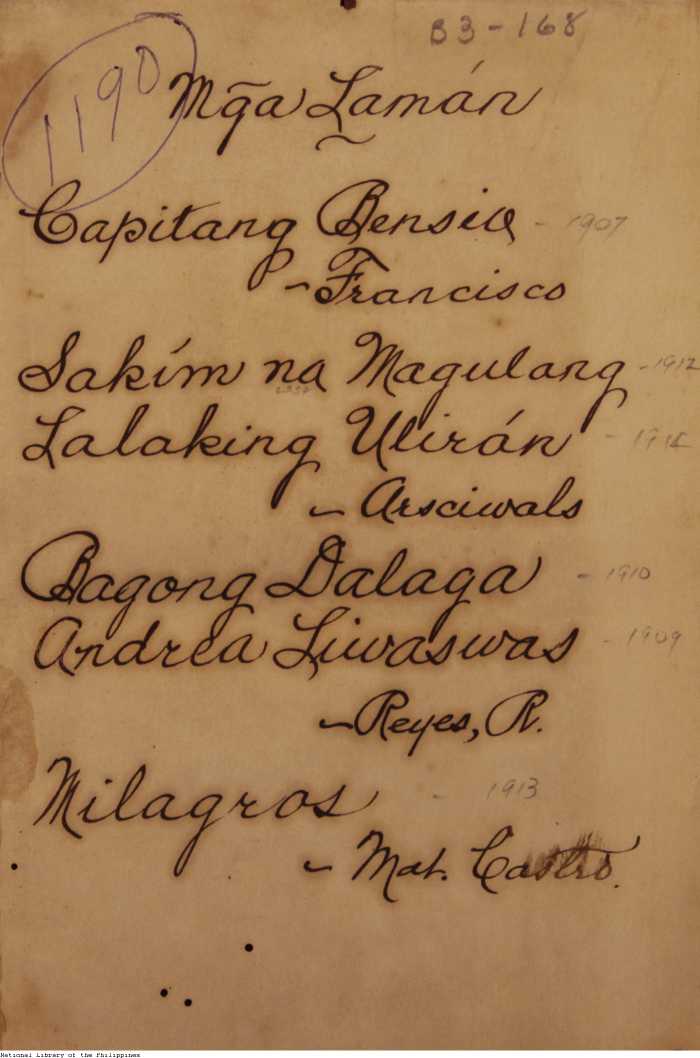 B3-168
1190
Mg̃a Lamán
Capitang Bensio - 1907
- Francisco
Sakím na Magulang - 1912
Lalaking Ulirán -
- Arsciwals
Bagong Dalaga - 1910
Andrea Liwaswas - 1909
- Reyes, R.
Milagros - 1913
- Mat. Castro.
National Library of the Philippines